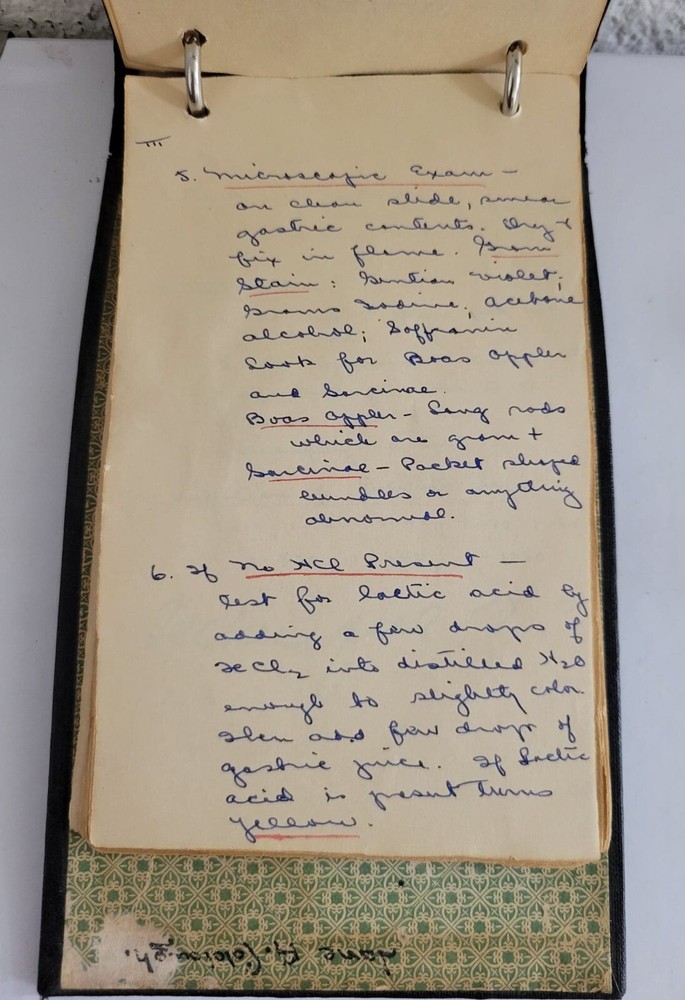 III
5. Microscopic Exam –
on clean slide, smear
gastric contents. Dry +
fix in flame. Gram
Stain: Gentian violet;
Grams Iodine; acetone
alcohol; Saffranin
Look for Boas Oppler
and Sarcinae.
Boas Oppler – Long rods
which are gram +
Sarcinae – Packet shaped
bundles or anything
abnormal.
6. If No HCl Present –
test for lactic acid by
adding a few drops of
FeCl2 into distilled H2O
enough to slightly color.
Then add few drops of
gastric juice. If lactic
acid is present turns
yellow.
Jane